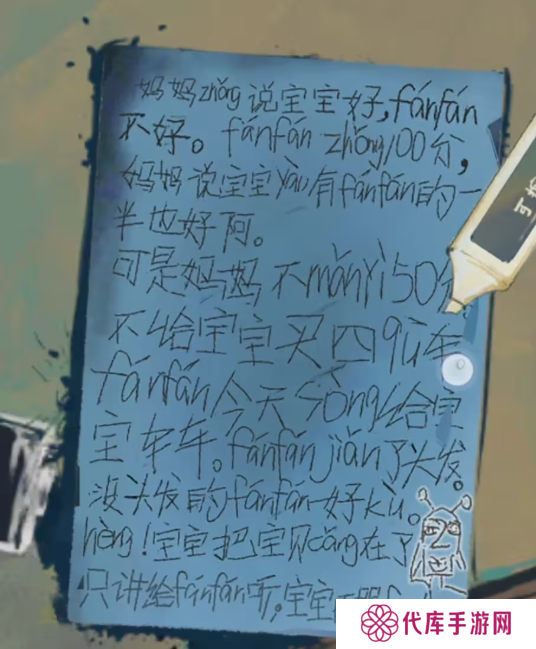 妈妈zhǒng说宝宝好,fánfán
不好。fánfán zhǒng100分,
妈妈说宝宝yào有fánfán的一
半也好阿。
可是妈妈不mǎnyì50分
不给宝宝买四qū车
fánfán今天sòng给宝
宝车车。fánfán jiǎn了头发。
没头发的fánfán好kù。
hèng!宝宝把宝贝cáng在了
只讲给fánfán听,宝宝
代库手游网